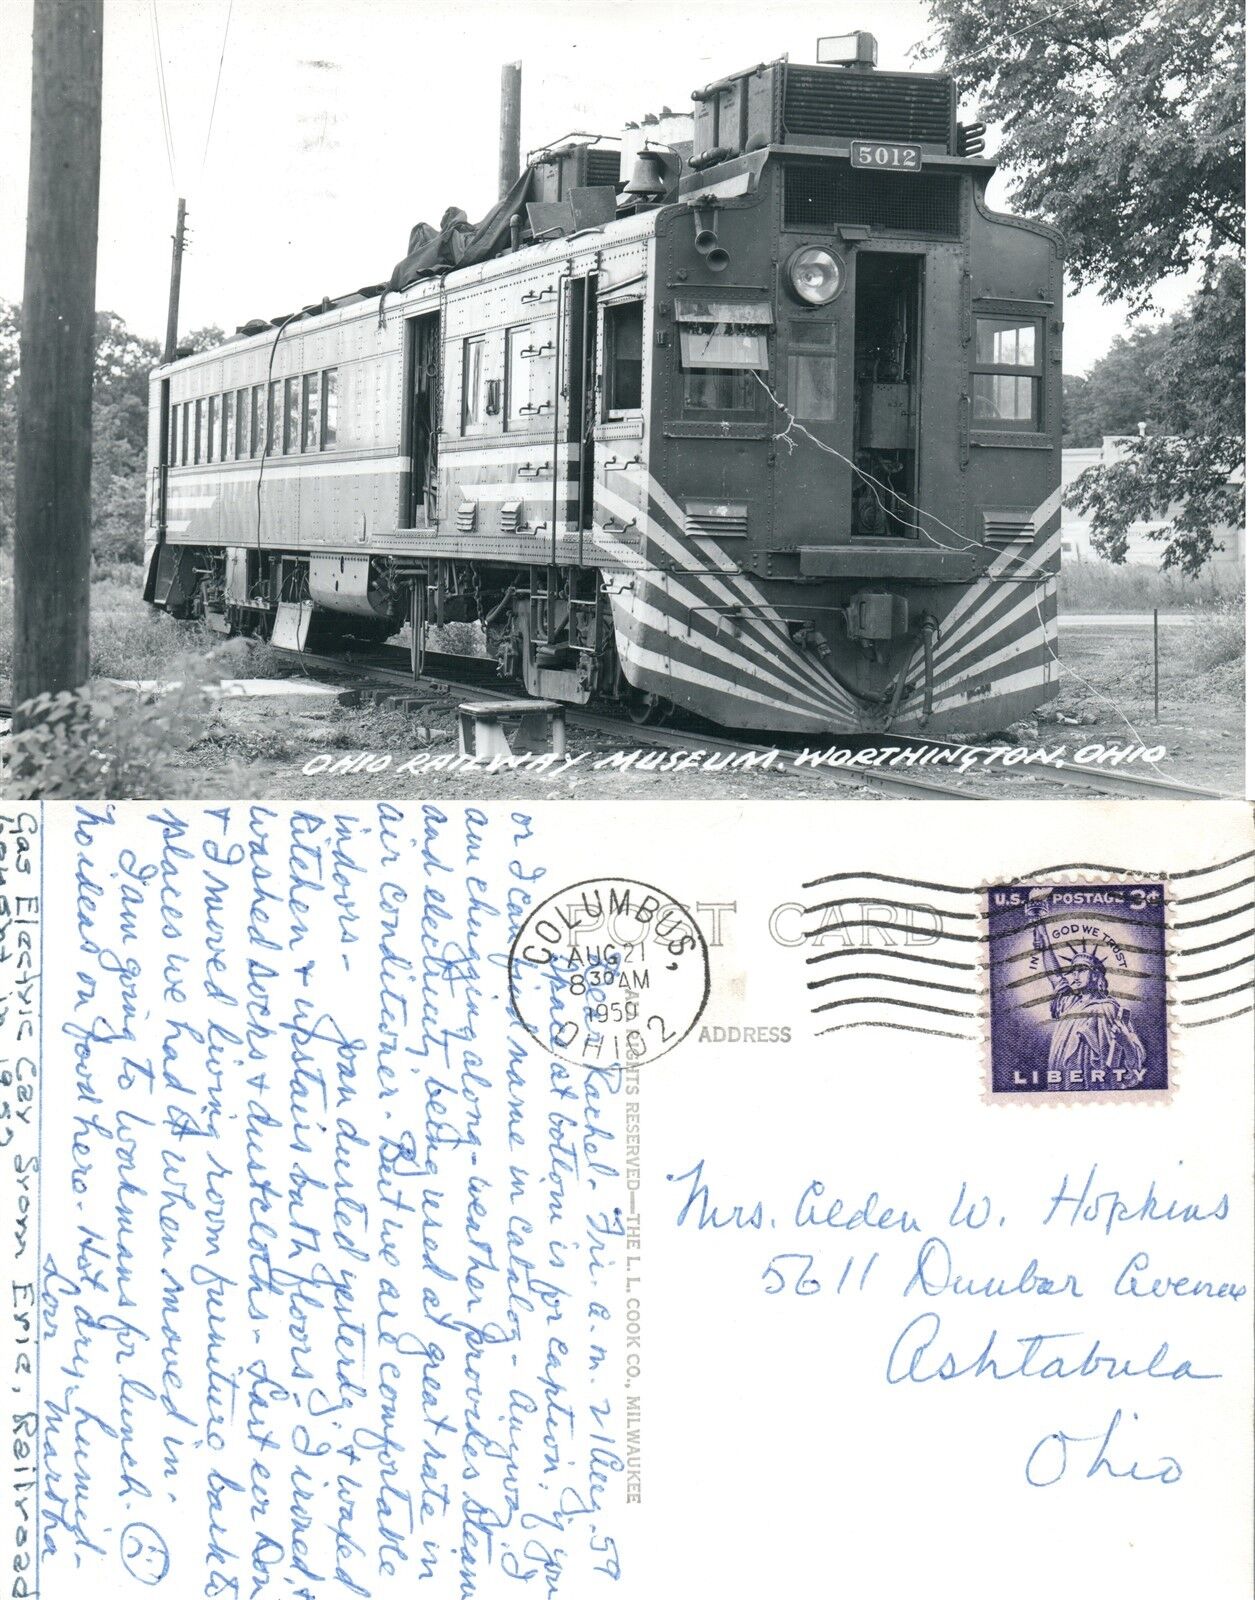 5012
OHIO RAILWAY MUSEUM. WORTHINGTON, OHIO
POST CARD
ADDRESS
COLUMBUS,
AUG 21
8 30 AM
1959
OHIO 2
U.S. POSTAGE 3¢
IN GOD WE TRUST
LIBERTY
Mrs. Alden W. Hopkins
5611 Dunbar Avenue
Ashtabula
Ohio
ALL RIGHTS RESERVED—THE L. L. COOK CO., MILWAUKEE
Dear Rachel - Fri. a.m. 21 Aug. 59
Space at bottom is for caption, if you
or I can find name in catalog - Anyway, I
am chugging along - weather provides steam
and electricity being used at great rate in
air conditioner. But we are comfortable
indoors -
Joan dusted yesterday & waxed
kitchen & upstairs bath floors; I ironed, &
washed socks & dustcloths - Last eve Don
& I moved living room furniture back to
places we had it when moved in.
I am going to Workmans for lunch.
No ideas on food here - Hot, dry, humid -
Love Martha
Gas Electric Car from Erie, Railroad
bought in